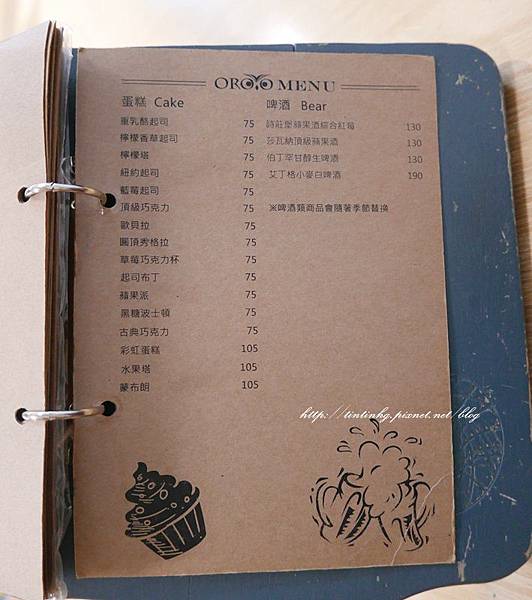 OROYO MENU
蛋糕 Cake
重乳酪起司 75
檸檬香草起司 75
檸檬塔 75
紐約起司 75
藍莓起司 75
頂級巧克力 75
歐貝拉 75
圓頂秀格拉 75
草莓巧克力杯 75
起司布丁 75
蘋果派 75
黑糖波士頓 75
古典巧克力 75
彩虹蛋糕 105
水果塔 105
蒙布朗 105
啤酒 Bear
詩莊堡蘋果酒綜合紅莓 130
莎瓦納頂級蘋果酒 130
伯丁罕甘醇生啤酒 130
艾丁格小麥白啤酒 190
※啤酒類商品會隨著季節替換
http://tintinhg.pixnet.net/blog